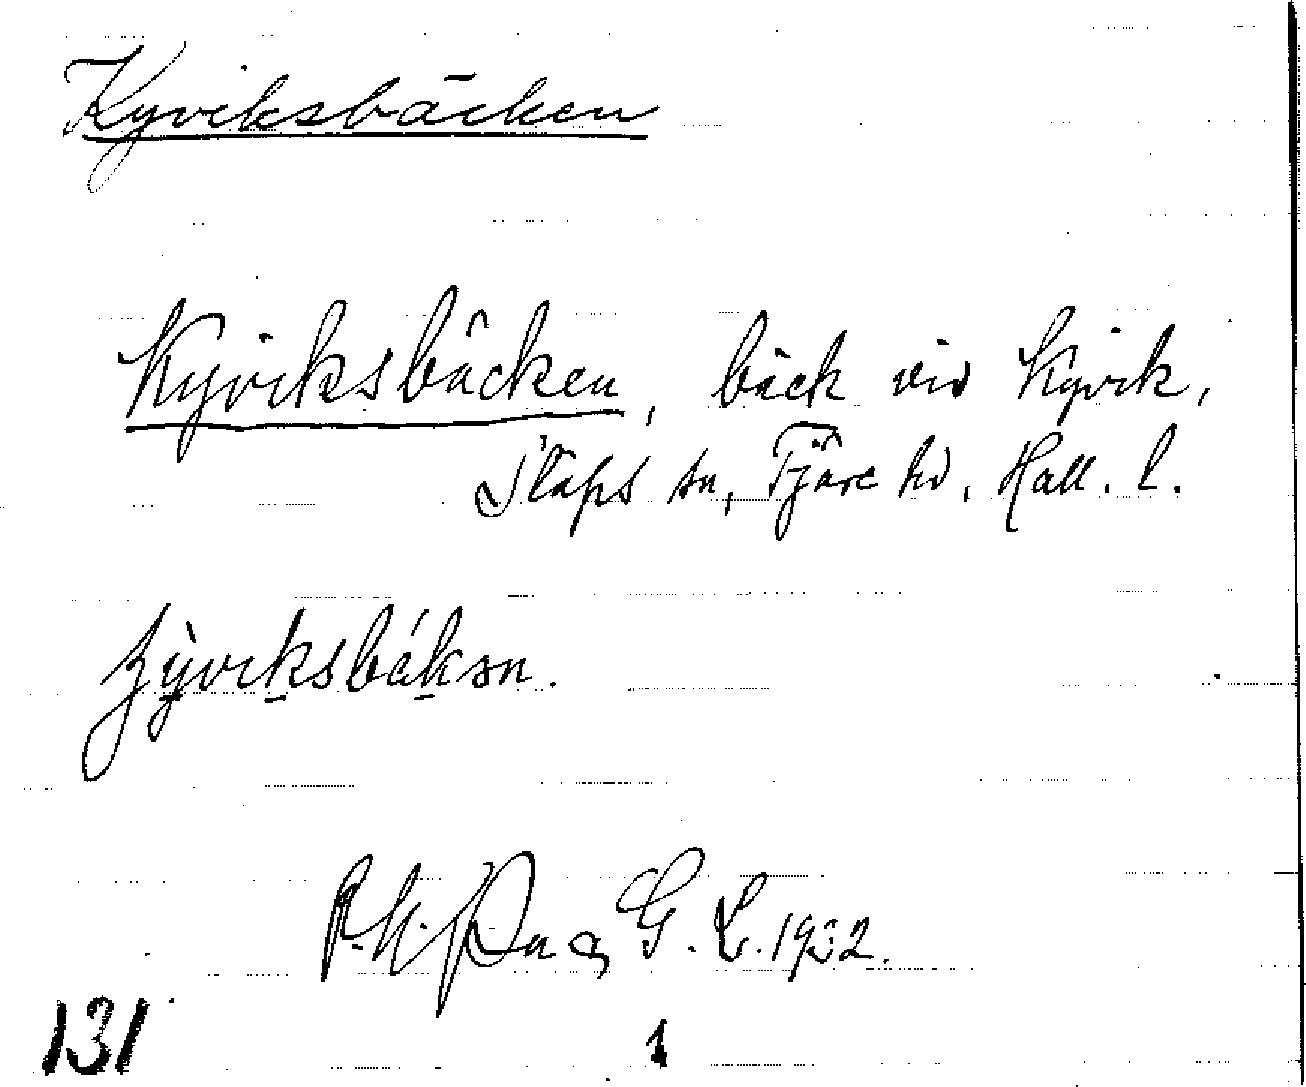 Kyviksbäcken
Kyviksbäcken, bäck vid Kyvik,
Släps sn, Fjäre hd, Hall. l.
G. L. 1932.
131
1